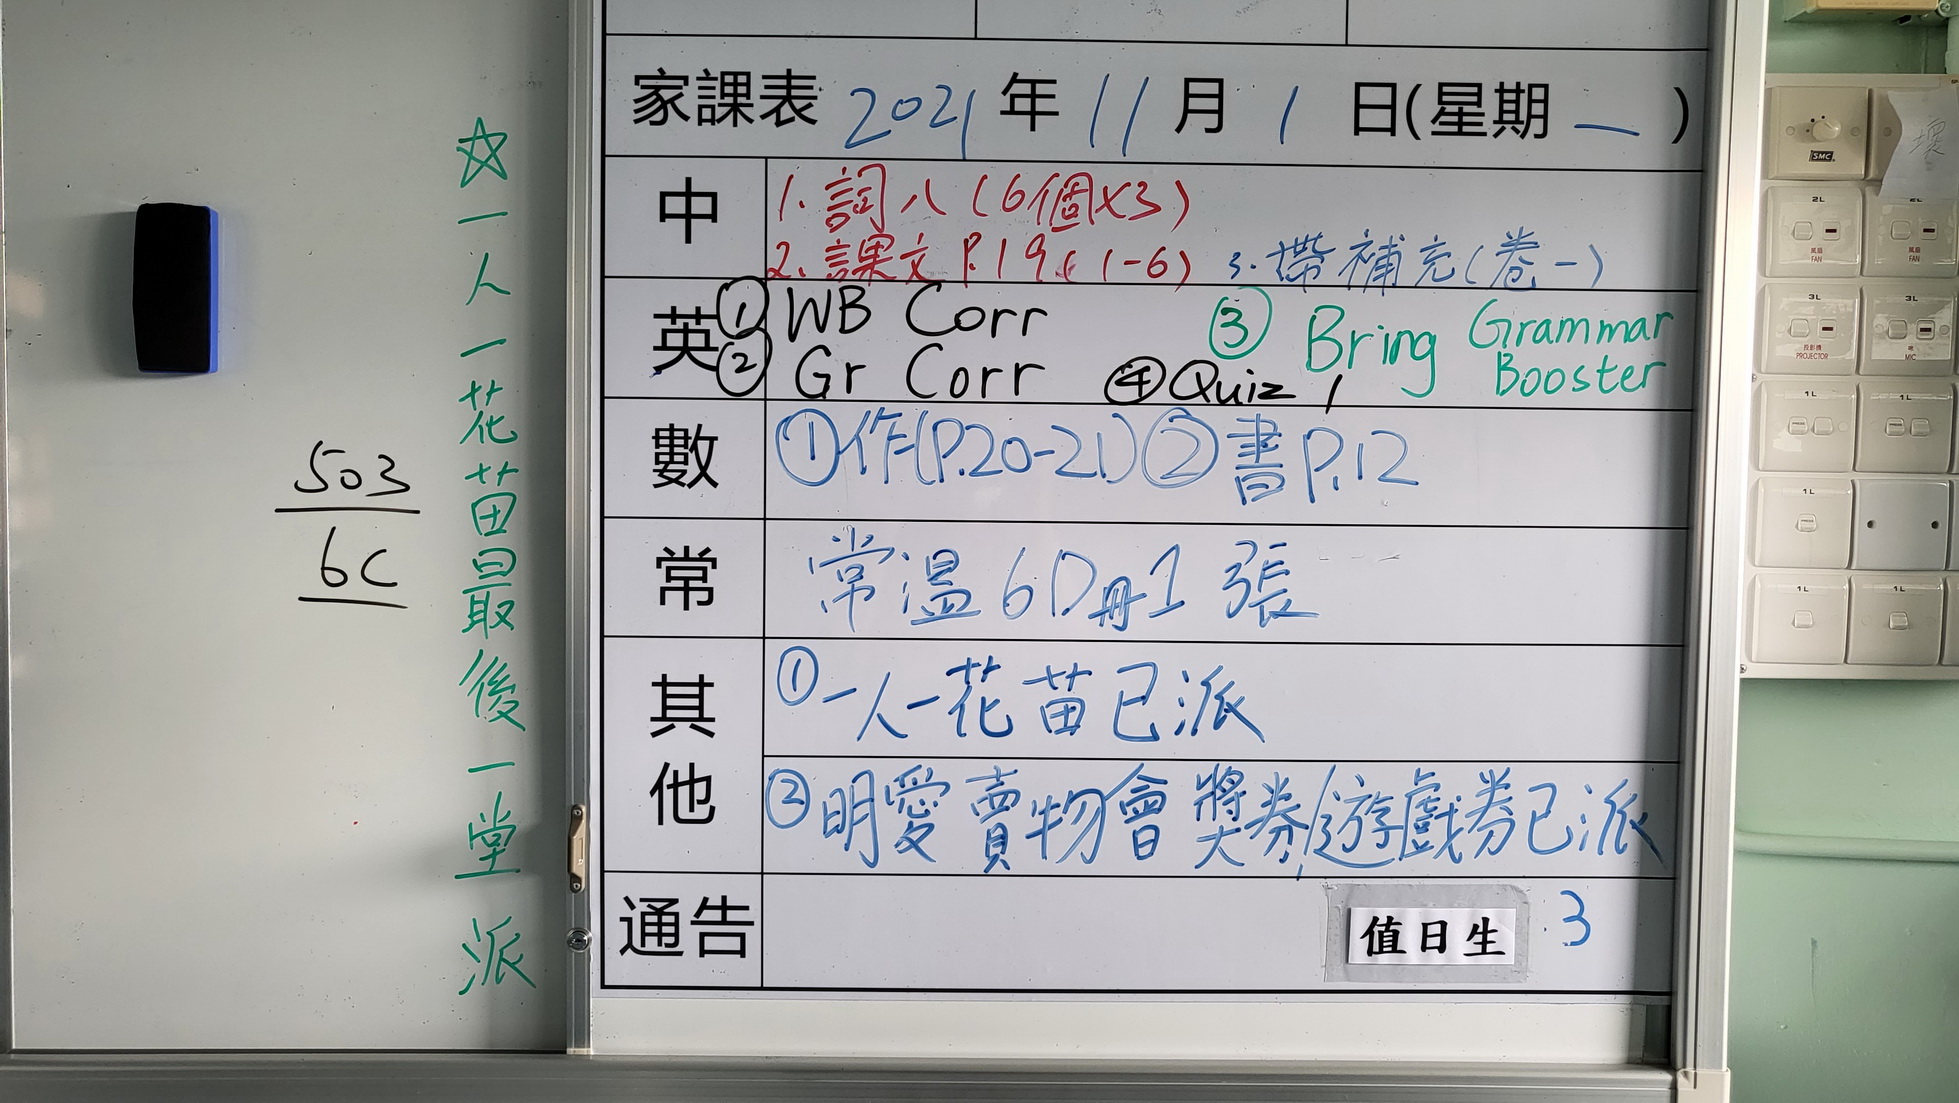 ☆一人一花苗最後一堂派
503
6C
家課表 2021年11月1日(星期一)
中
1. 詞八(6個x3)
2. 課文P.19(1-6) 3. 帶補充(卷一)
英
① WB Corr ③ Bring Grammar Booster
② Gr Corr ④ Quiz 1
數
①作(P.20-21) ②書P.12
常
常温6D冊1 張
其他
①一人一花苗已派
②明愛賣物會獎券/遊戲券已派
通告
值日生 3
壞
SMC
2L
風扇
FAN
2L
風扇
FAN
3L
投影機
PROJECTOR
3L
咪
MIC
1L
1L
1L
1L
1L